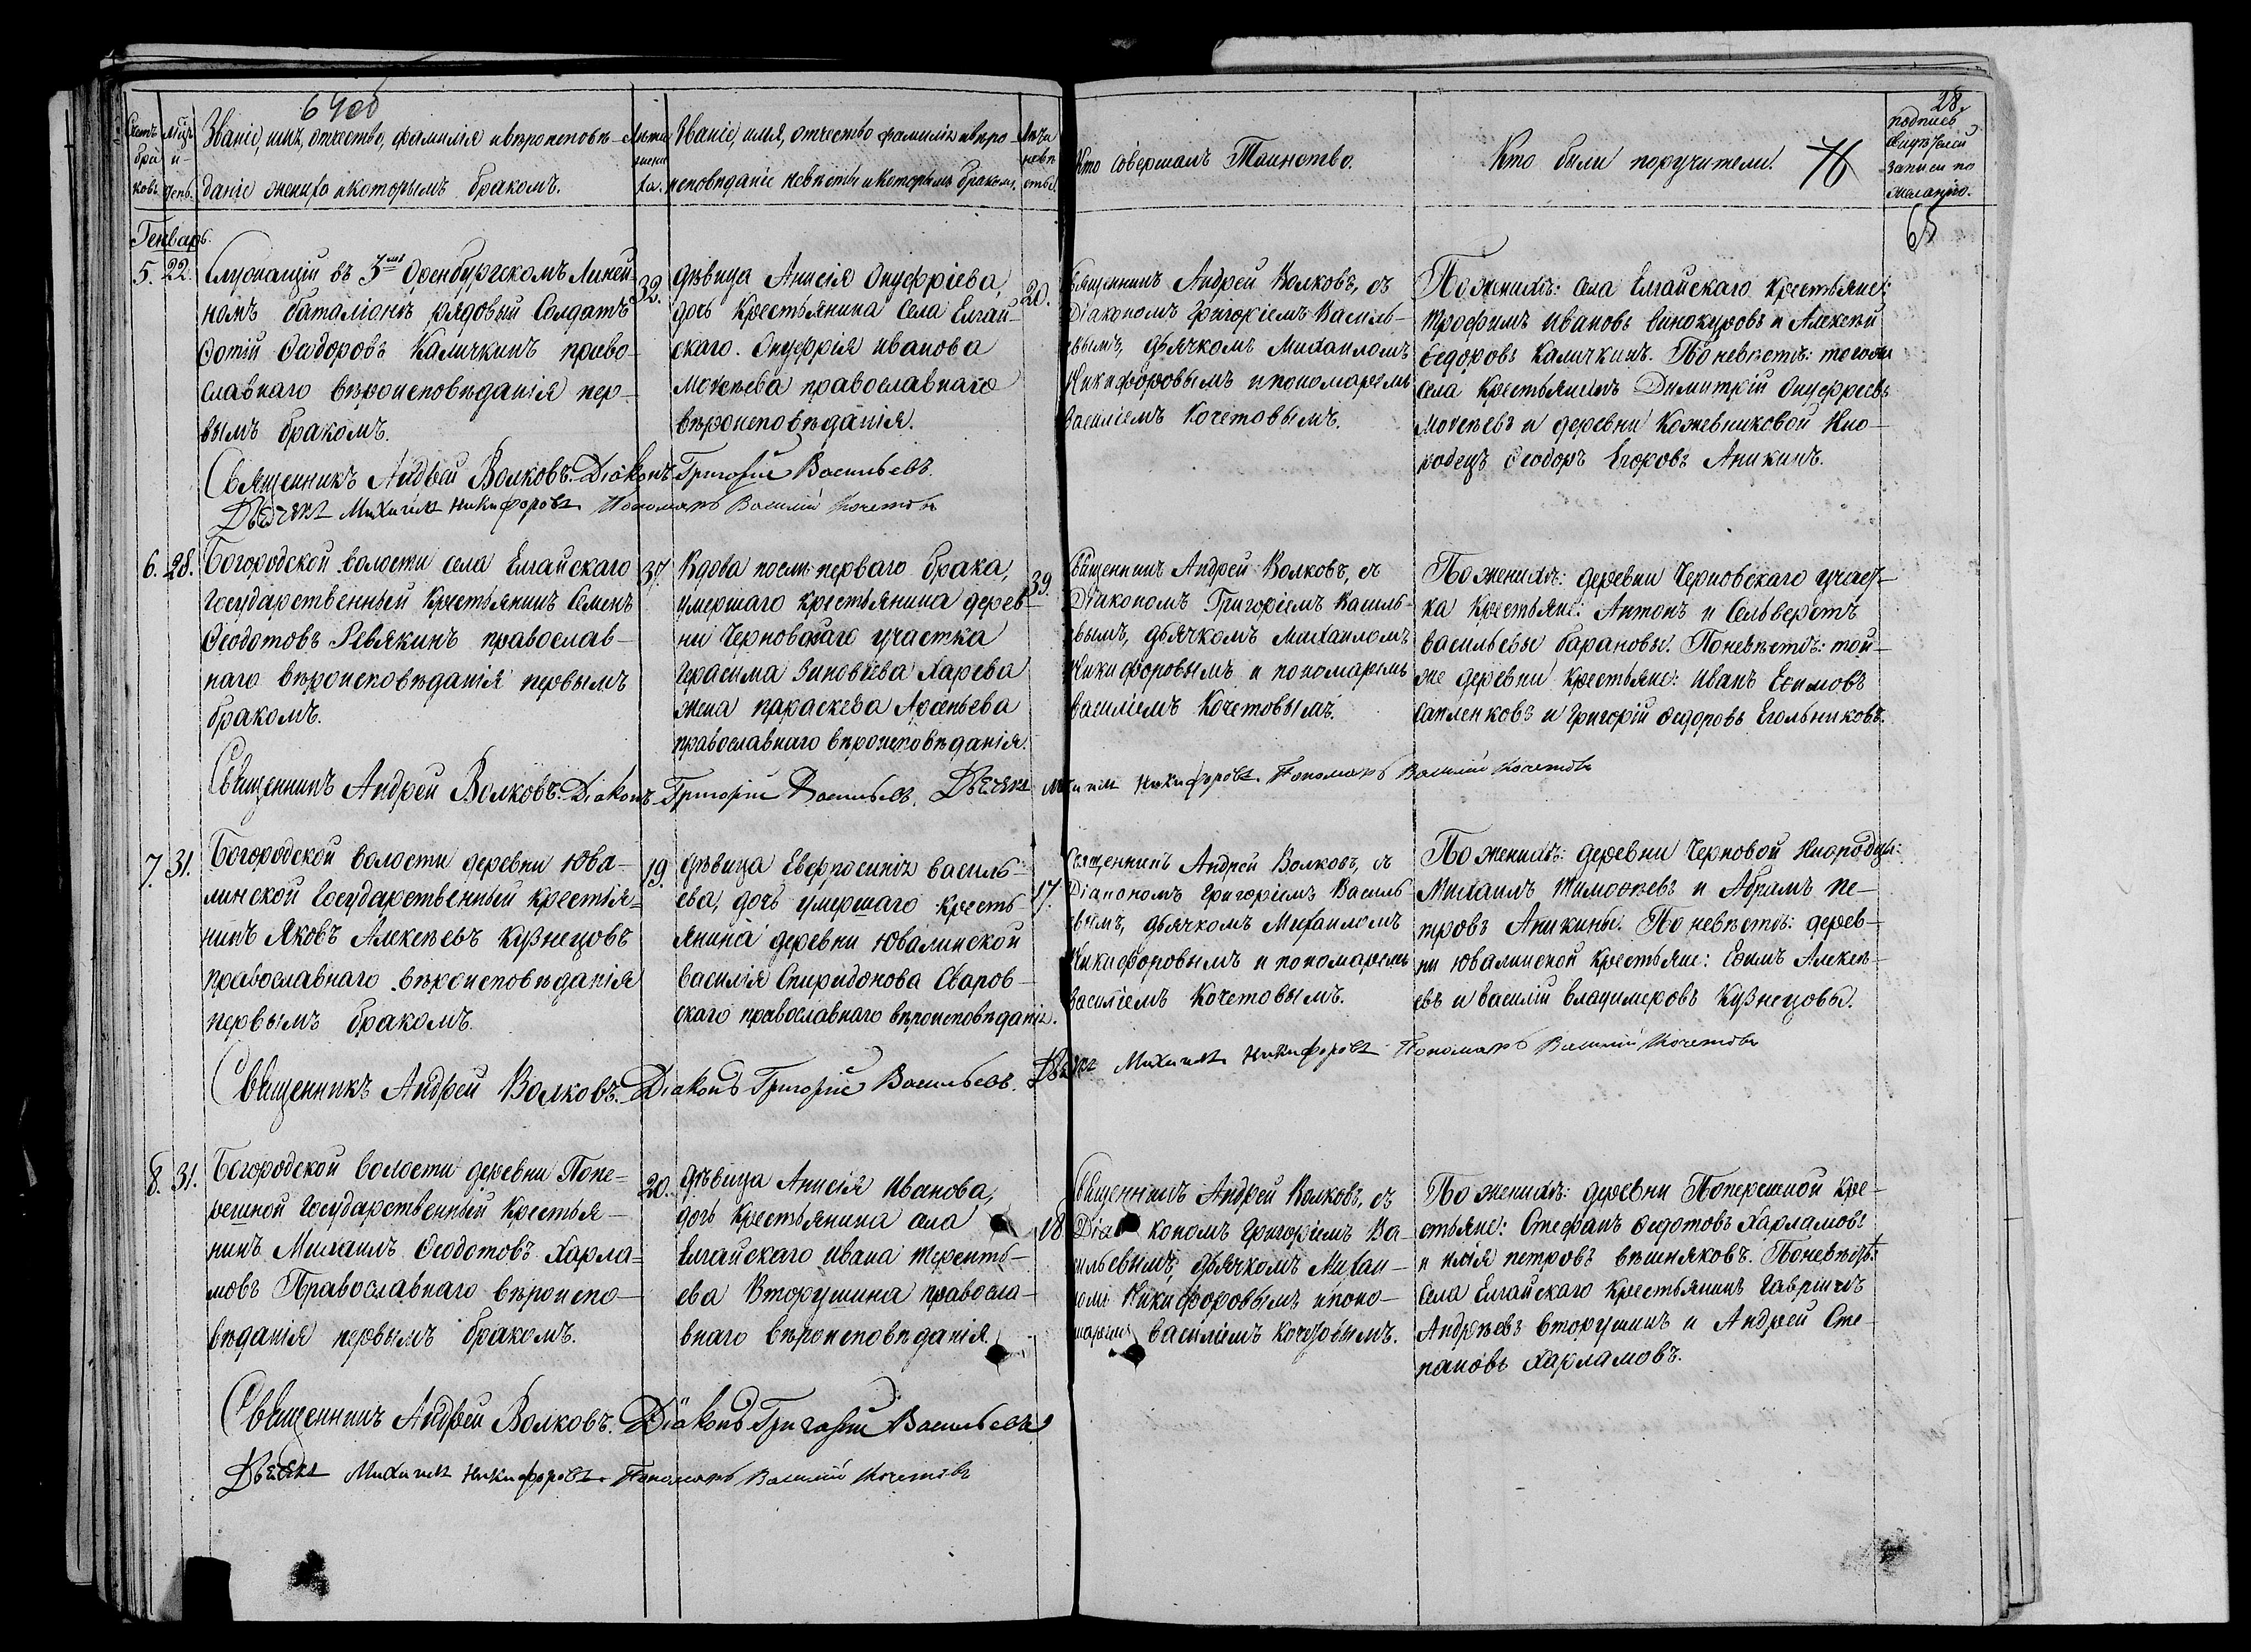 28.
Счетъ браковъ.
Мѣсяцъ и день.
Званіе, имя, отчество, фамилія и вѣроисповѣ-
даніе жениха и которымъ бракомъ.
Лѣта жениха.
Званіе, имя, отчество фамилія и вѣро-
исповѣданіе невѣсты и которымъ бракомъ.
Лѣта невѣсты.
Кто совершалъ Таинство.
Кто были поручители.
76
подпись
свидѣтелей
записи по
желанію.
65
Генварь.
5. 22.
Служащій въ 3мъ Оренбургскомъ Линей-
номъ баталіонѣ рядовый Солдатъ
Фотій Ѳедоровъ Каличкинъ право-
славнаго вѣроисповѣданія пер-
вымъ бракомъ.
32.
дѣвица Анисія Онуфріева,
дочь Крестьянина Села Елгай-
скаго. Онуфрія Иванова
Мокѣева православнаго
вѣроисповѣданія.
20.
Священникъ Андрей Волковъ, съ
Діакономъ Григоріемъ Василь-
евымъ, дьячкомъ Михаиломъ
Никифоровымъ и пономаремъ
Василіемъ Кочетовымъ.
По женихѣ: села Елгайскаго Крестьяне:
Трофимъ Ивановъ Винокуровъ и Алексѣй
Ѳедоровъ Каличкинъ. По невѣстѣ: тогоже
Села Крестьянинъ Димитрій Онуфреевъ
Мокѣевъ и деревни Кожевниковой Ино-
родецъ Ѳеодоръ Егоровъ Аникинъ.
Священникъ Андрей Волковъ. Діаконъ Григорій Васильевъ
Дьячекъ Михаилъ Никифоровъ Пономарь Василій Кочетовъ
6. 28.
Богородской волости села Елгайскаго
Государственный Крестьянинъ Семенъ
Ѳеодотовъ Ревякинъ православ-
наго вѣроисповѣданія первымъ
бракомъ.
37.
Вдова послѣ перваго брака,
умершаго крестьянина дерев-
ни Черновскаго участка
Герасима Зиновѣева Харева
жена Параскева Арсеньева
православнаго вѣроисповѣданія.
39.
Священникъ Андрей Волковъ, съ
Діакономъ Григоріемъ Василь-
евымъ, дьячкомъ Михаиломъ
Никифоровымъ и пономаремъ
Василіемъ Кочетовымъ.
По женихѣ: деревни Черновскаго участ-
ка Крестьяне: Антонъ и Сельверстъ
Васильевы Барановы. По невѣстѣ: той-
же деревни Крестьяне: Иванъ Ефимовъ
Сапленковъ и Григорій Ѳедоровъ Егольниковъ.
Священникъ Андрей Волковъ. Діаконъ Григорій Васильевъ. Дьячекъ Михаилъ Никифоровъ. Пономарь Василій Кочетовъ
7. 31.
Богородской волости деревни Юва-
линской Государственный Крестья-
нинъ Яковъ Алексѣевъ Кузнецовъ
православнаго вѣроисповѣданія
первымъ бракомъ.
19.
дѣвица Евфросинія Василь-
ева, дочь умершаго кресть-
янина деревни Ювалинской
Василія Спиридонова Сваров-
скаго православнаго вѣроисповѣданія.
17.
Священникъ Андрей Волковъ, съ
Діакономъ Григоріемъ Василь-
евымъ, дьячкомъ Михаиломъ
Никифоровымъ и пономаремъ
Василіемъ Кочетовымъ.
По женихѣ: деревни Черновой Инородцы:
Михаилъ Тимофѣевъ и Абрамъ Пе-
тровъ Аникины. По невѣстѣ: дерев-
ни Ювалинской Крестьяне: Ефимъ Алексѣ-
евъ и Василій Владимеровъ Кузнецовы.
Священникъ Андрей Волковъ. Діаконъ Григорій Васильевъ. Дьячекъ Михаилъ Никифоровъ Пономарь Василій Кочетовъ
8. 31.
Богородской волости деревни Попе-
решной Государственный Крестья-
нинъ Михаилъ Ѳеодотовъ Харла-
мовъ Православнаго вѣроиспо-
вѣданія первымъ бракомъ.
20.
дѣвица Анисія Иванова,
дочь Крестьянина села
Елгайскаго Ивана Теренть-
ева Вторушина правосла-
внаго вѣроисповѣданія
18.
Священникъ Андрей Волковъ, съ
Діакономъ Григоріемъ Ва-
сильевымъ, дьячкомъ Михаи-
ломъ Никифоровымъ и поно-
маремъ Василіемъ Кочетовымъ.
По женихѣ: деревни Поперешной Кре-
стьяне: Стефанъ Ѳедотовъ Харламовъ
и Илія Петровъ Вѣшняковъ. По невѣстѣ:
Села Елгайскаго Крестьянинъ Гавріилъ
Андрѣевъ Вторушинъ и Андрей Сте-
пановъ Харламовъ.
Священникъ Андрей Волковъ. Діаконъ Григорій Васильевъ
Дьячекъ Михаилъ Никифоровъ. Пономарь Василій Кочетовъ